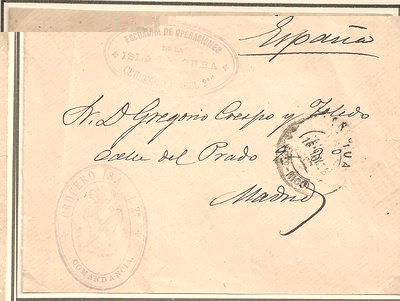 ESCUADRA DE OPERACIONES
DE LA
ISLA DE CUBA
España
Sr. D. Gregorio Crespo y Toledo
Calle del Prado
Madrid
CRUCERO ISABEL 2ª
COMANDANCIA